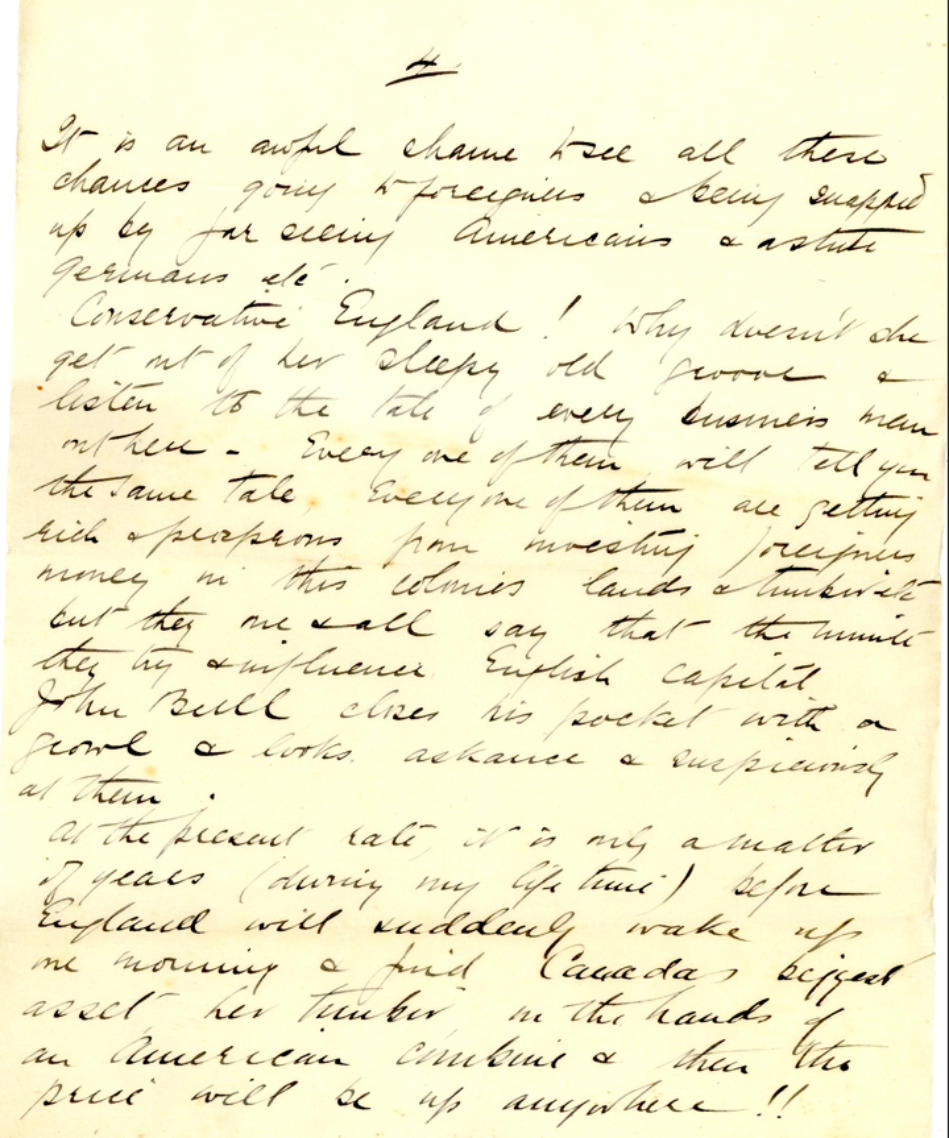 4.
It is an awful shame to see all these
chances going to foreigners & being snapped
up by far seeing Americans & astute
Germans etc.
Conservative England! Why doesn't she
get out of her sleepy old groove &
listen to the tale of every business man
out here - Every one of them will tell you
the same tale, Everyone of them are getting
rich & prosperous from investing foreigners
money in this colonies lands & timber etc
but they one & all say that the minute
they try & influence English capital
John Bull closes his pocket with a
growl & looks askance & suspiciously
at them.
At the present rate, it is only a matter
of years (during my life time) before
England will suddenly wake up
one morning & find Canadas biggest
asset, her timber, in the hands of
an American combine & then the
price will be up anywhere!!